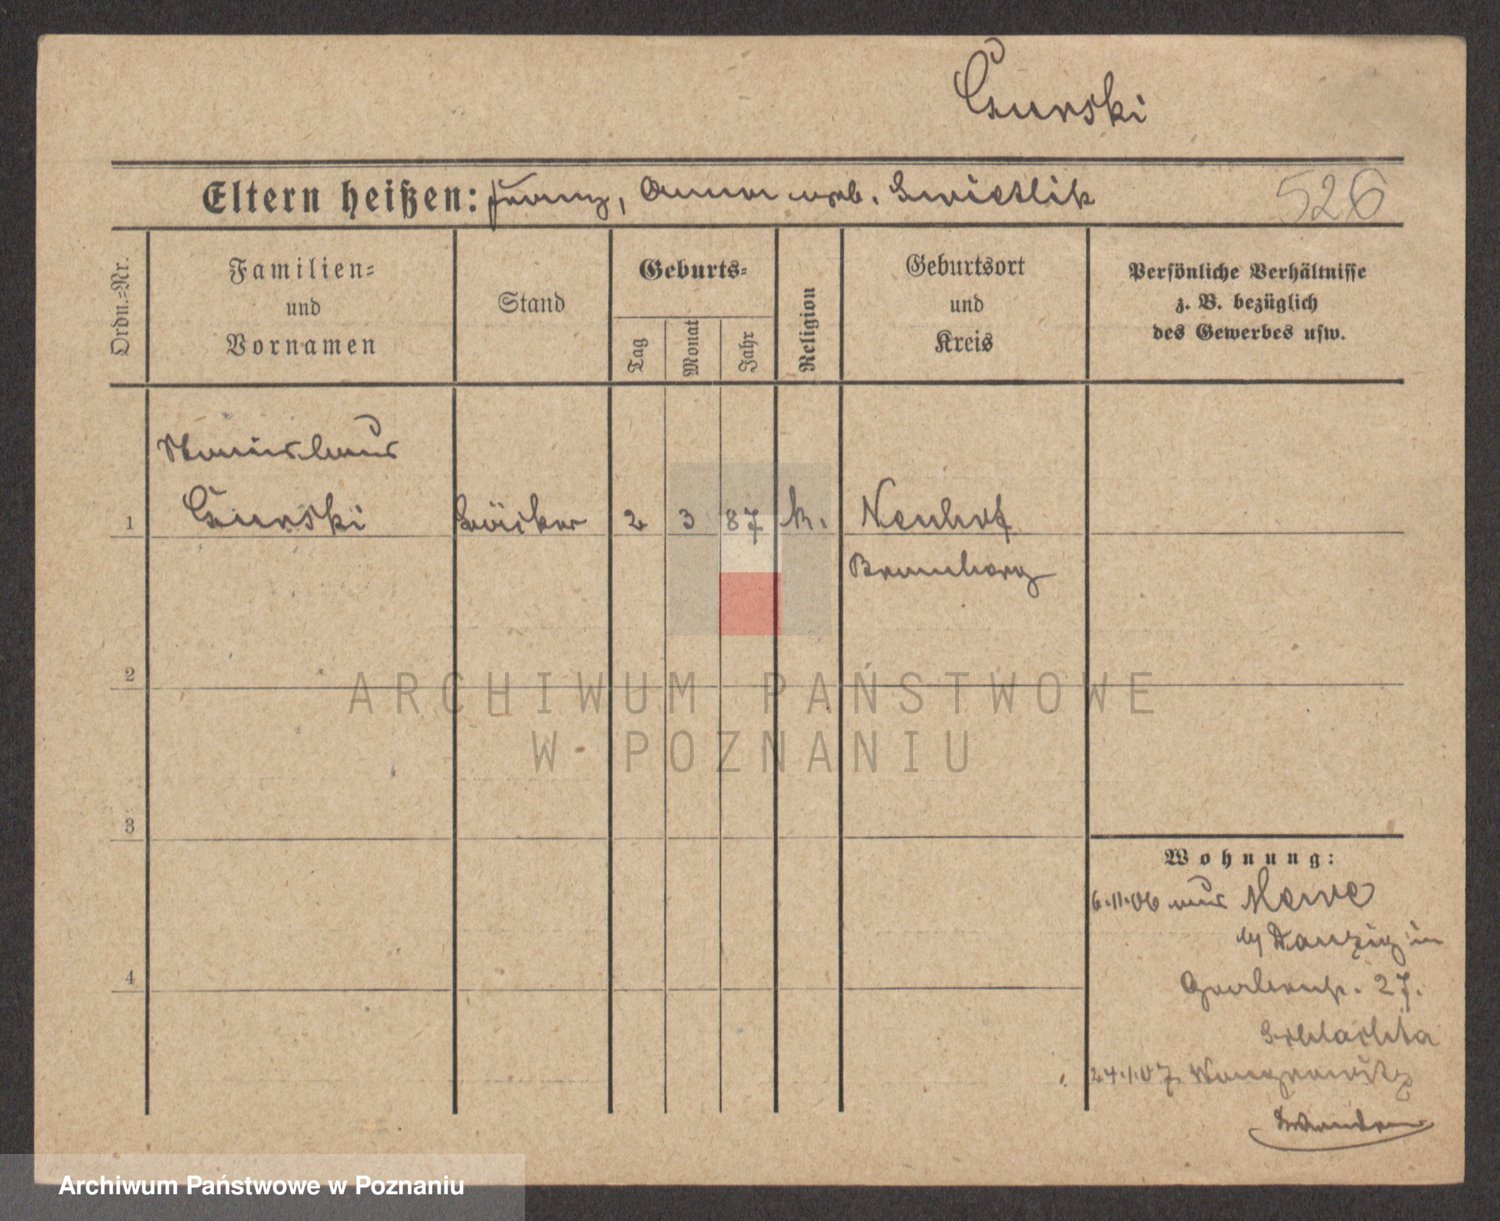 Gurski
Eltern heißen: Franz, Anna geb. Swietlik 526
Ordn.=Nr.
Familien=
und
Vornamen
Stand
Geburts=
Tag
Monat
Jahr
Religion
Geburtsort
und
Kreis
Persönliche Verhältnisse
z. B. bezüglich
des Gewerbes usw.
Stanislaus
1 Gurski Bäcker 2 3 87 k. Neuhof
Bromberg
2
ARCHIWUM PAŃSTWOWE
W POZNANIU
3
Wohnung:
6.11.06 aus Mewe
Danzig in
Grabenst. 27.
Schlachta
4
24.1.07 Wongrowitz
Archiwum Państwowe w Poznaniu